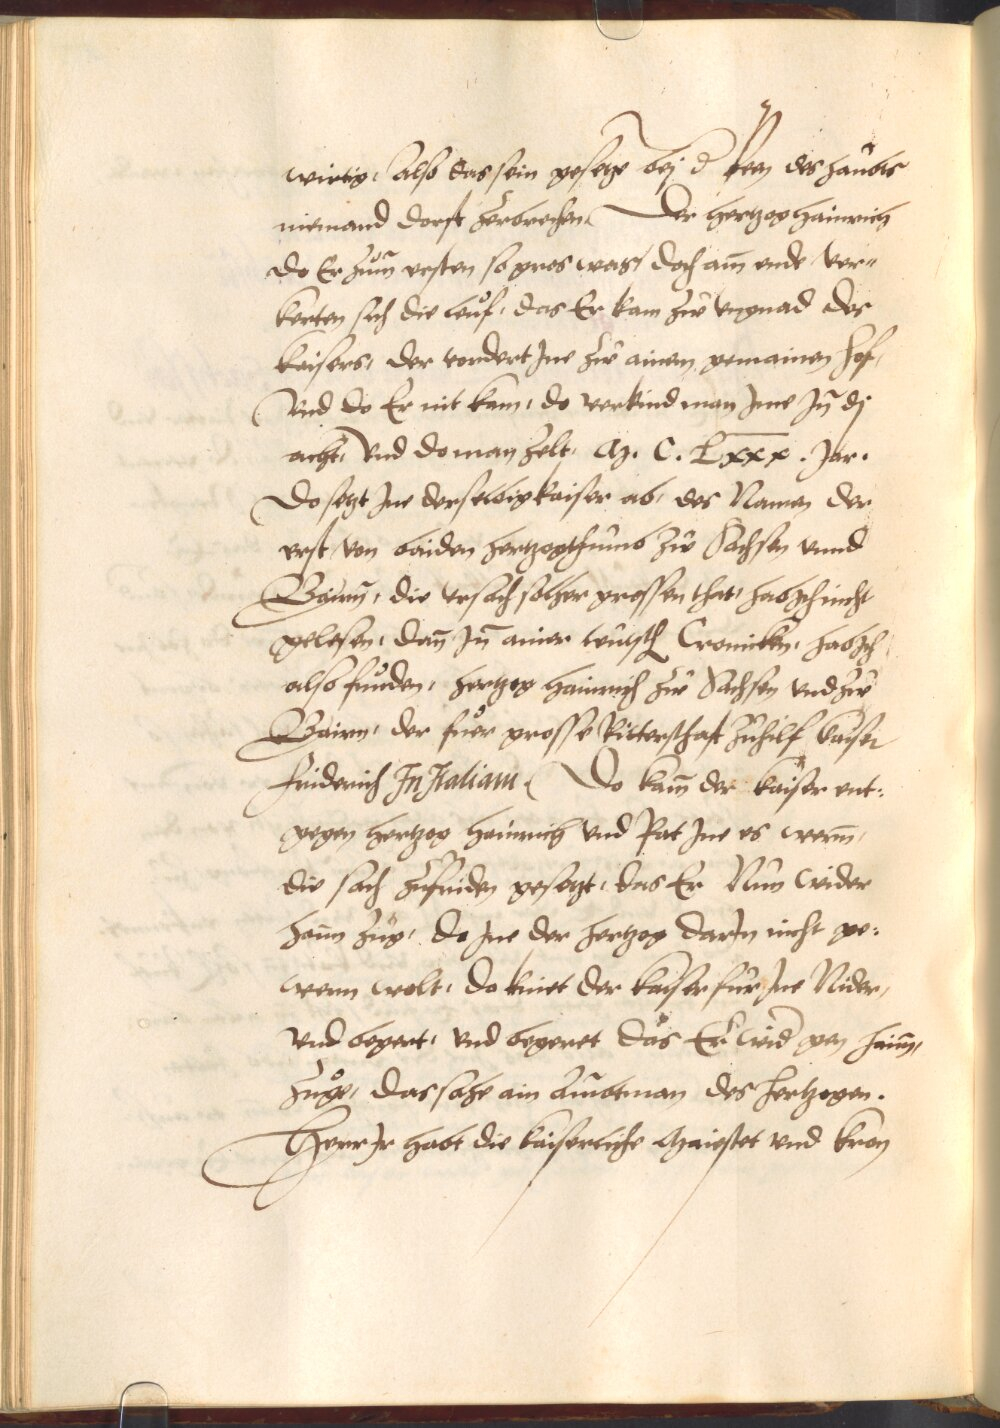 wirtig, Also das sein gesetze bej d peen des haubts
niemand dorft zerbrechen. Der hertzog hainrich
do Er zum ersten so gros was, doch am ende ver=
kerten sich die leuf, das Er kam zu ungnad des
kaisers, der vordert Jne zu ainem gemainen hof,
Vnd do Er nit kam, do verkind man Jme Jn dj
acht, Vnd do man zelt, M. C. Lxxx. Jar.
Do setzt Jne derselbig kaiser ab, des Namen der
erst, von baiden hertzogthumb zu Sachsen vnnd
Bairn, die vrsach solcher grossen that, hab Jch nicht
gelesen, dan Jn ainer teutsch Cronickn, hab Jch
also funden, hertzog hainrich zu Sachsen vnd zu
Bairn, der fuer grosse Ritterschaft zu hilf kaiser
Friderich Jn Jtaliam. Do kam der kaiser ent=
gegen hertzog hainrich vnd Pat Jne es wern,
die sach zufriden gesetzt, das Er Nun wider
haim zug, do Jne der hertzog darJn nicht ge=
wern wolt, do kniet der kaiser fur Jne Nider,
vnd begert, vnd begeret das Er wid gen haim,
zuge, das sahe ain Ambtman des hertzogen.
Herr Jr habt die kaiserliche Maiestet vnd kron